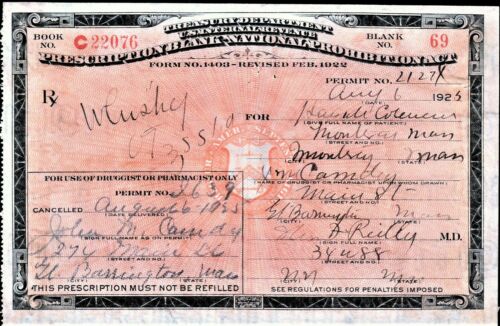 TREASURY DEPARTMENT
U.S. INTERNAL REVENUE
BOOK NO. C22076
BLANK NO. 69
PRESCRIPTION BLANK-NATIONAL PROHIBITION ACT
FORM NO. 1403-REVISED FEB. 1922
PERMIT NO.
Rx Whisky
Aug 6 1925
(DATE)
FOR
(GIVE FULL NAME OF PATIENT)
Monterey Mass
(STREET AND NO.)
Monterey Mass
(CITY) (STATE)
FOR USE OF DRUGGIST OR PHARMACIST ONLY
(NAME OF DRUGGIST OR PHARMACIST UPON WHOM DRAWN)
PERMIT NO. 2639
Main St
(STREET AND NO.)
CANCELLED Aug 6-1925
(DATE DELIVERED)
Gt Barrington Mass
(CITY) (STATE)
John M. Cassidy
Reilly M.D.
(SIGN FULL NAME AS ON PERMIT)
(SIGN FULL NAME)
274 Main St
(STREET AND NO.)
(STREET AND NO.)
Gt. Barrington Mass
(CITY) (STATE)
(CITY) (STATE)
THIS PRESCRIPTION MUST NOT BE REFILLED
SEE REGULATIONS FOR PENALTIES IMPOSED